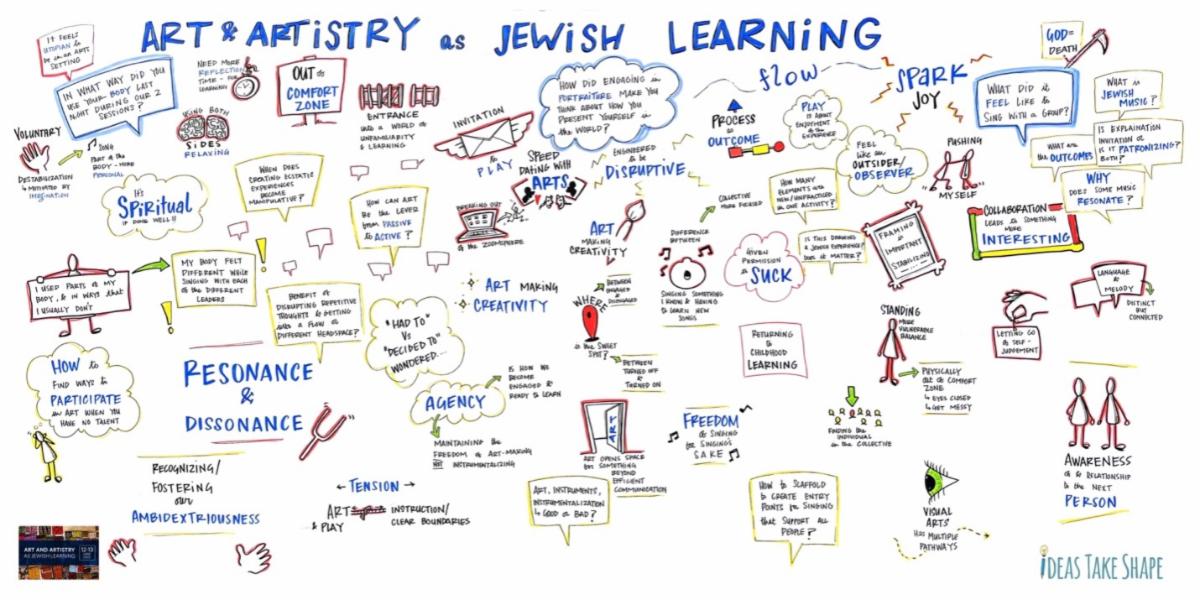 ART & ARTISTRY as JEWISH LEARNING
IT FEELS
UTOPIAN to
be in an ARTS
SETTING
IN WHAT WAY DID YOU
USE YOUR BODY LAST
NIGHT DURING OUR 2
SESSIONS?
NEED MORE
REFLECTION
TIME - for
LEARNING
OUT of
COMFORT
ZONE
ENTRANCE
into a WORLD of
UNFAMILIARITY
& LEARNING
INVITATION
to
PLAY
HOW DID ENGAGING in
PORTRAITURE MAKE YOU
THINK ABOUT HOW YOU
PRESENT YOURSELF in
the WORLD?
flow
PROCESS
as
OUTCOME
PLAY
IS ABOUT
ENJOYMENT of
the EXPERIENCE
SPARK
JOY
GOD=
DEATH
WHAT DID it
FEEL LIKE to
SING WITH a GROUP?
WHAT is
JEWISH
MUSIC?
IS EXPLAINATION
INVITATION or
IS it PATRONIZING?
BOTH?
WHAT are
the OUTCOMES
WHY
DOES SOME MUSIC
RESONATE?
VOLUNTARY
DESTABILIZATION
is MITIGATED by
IMAGINATION
SONG
PART of the
BODY - MORE
PERSONAL
USING BOTH
SIDES
RELAXING
IT'S
SPIRITUAL
if DONE WELL!!
WHEN DOES
CREATING ECSTATIC
EXPERIENCES
BECOME
MANIPULATIVE?
HOW CAN ART
BE the LEVER
from PASSIVE
to ACTIVE?
SPEED
DATING WITH
ARTS
BREAKING OUT
of the ZOOMSPHERE
ENGINEERED
to be
DISRUPTIVE
ART
MAKING
CREATIVITY
COLLECTIVE
MORE FOCUSED
HOW MANY
ELEMENTS with
NEW/UNPRACTICED
in ONE ACTIVITY?
FEEL
LIKE an
OUTSIDER/
OBSERVER
PUSHING
MYSELF
FRAMING
is
IMPORTANT
STABILIZING
COLLABORATION
LEADS to SOMETHING
MORE
INTERESTING
I USED PARTS of MY
BODY, & IN WAYS that
I USUALLY DON'T
MY BODY FELT
DIFFERENT WHILE
SINGING WITH EACH
of the DIFFERENT
LEADERS
BENEFIT of
DISRUPTING REPETITIVE
THOUGHTS & GETTING
into a FLOW or
DIFFERENT HEADSPACE?
"HAD TO"
Vs
"DECIDED TO"
WONDERED...
ART MAKING
CREATIVITY
WHERE
is the SWEET
SPOT?
BETWEEN
ENGAGED &
DISENGAGED
BETWEEN
TURNED OFF &
TURNED ON
DIFFERENCE
BETWEEN
SINGING SOMETHING
I KNOW & HAVING
to LEARN NEW
SONGS
GIVEN
PERMISSION
to
SUCK
IS THIS DRAWING
a JEWISH EXPERIENCE?
DOES it MATTER?
RETURNING
to
CHILDHOOD
LEARNING
STANDING
MORE
VULNERABLE
BALANCE
PHYSICALLY
OUT of COMFORT
ZONE
EYES CLOSED
GET MESSY
LETTING GO
of SELF-
JUDGEMENT
LANGUAGE &
MELODY
DISTINCT
but
CONNECTED
HOW to
FIND WAYS to
PARTICIPATE
in ART WHEN YOU
HAVE NO TALENT
RESONANCE
&
DISSONANCE
AGENCY
IS HOW WE
BECOME
ENGAGED &
READY to LEARN
MAINTAINING the
FREEDOM of ART-MAKING
NOT INSTRUMENTALIZING
ART
ART OPENS SPACE
for SOMETHING
BEYOND
EFFICIENT
COMMUNICATION
FREEDOM
of SINGING
for SINGING'S
SAKE
FINDING the
INDIVIDUALS
in the COLLECTIVE
AWARENESS
of & RELATIONSHIP
to the NEXT
PERSON
RECOGNIZING/
FOSTERING
our
AMBIDEXTRIOUSNESS
TENSION
ART
& PLAY
INSTRUCTION/
CLEAR BOUNDARIES
ART, INSTRUMENTS,
INSTRUMENTALIZATION
GOOD or BAD?
HOW to SCAFFOLD
to CREATE ENTRY
POINTS for SINGING
that SUPPORT ALL
PEOPLE?
VISUAL
ARTS
HAS MULTIPLE
PATHWAYS
ART AND ARTISTRY
AS JEWISH LEARNING
12-13
iDEAS TAKE SHAPE